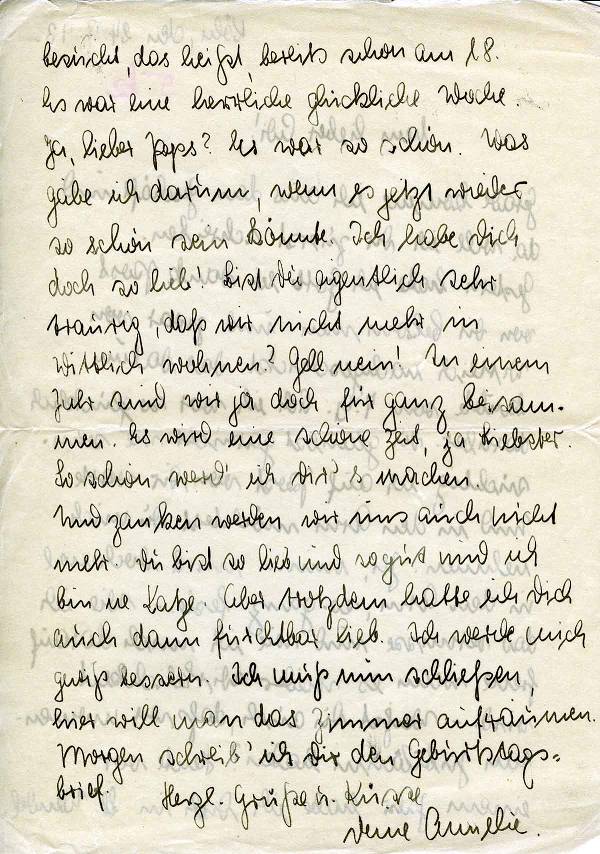 besucht, das heißt, bereits schon am 18.
Es war eine herrliche glückliche Woche.
Ja, lieber Paps? Es war so schön. Was
gäbe ich darum, wenn es jetzt wieder
so schön sein könnte. Ich habe Dich
doch so lieb! Bist Du eigentlich sehr
traurig, daß wir nicht mehr in
Wittlich wohnen? Gell nein! In einem
Jahr sind wir ja doch für ganz beisam-
men. Es wird eine schöne Zeit, ja Liebster.
So schön werd' ich dir's machen.
Und zanken werden wir uns auch nicht
mehr. Du bist so lieb und so gut und ich
bin ne Katze. Aber trotzdem hatte ich Dich
auch dann furchtbar lieb. Ich werde mich
gewiß bessern. Ich muß nun schließen,
hier will man das Zimmer aufräumen.
Morgen schreib' ich Dir den Geburtstags=
brief. Herzl. Grüße u. Küsse
Deine Annelie.